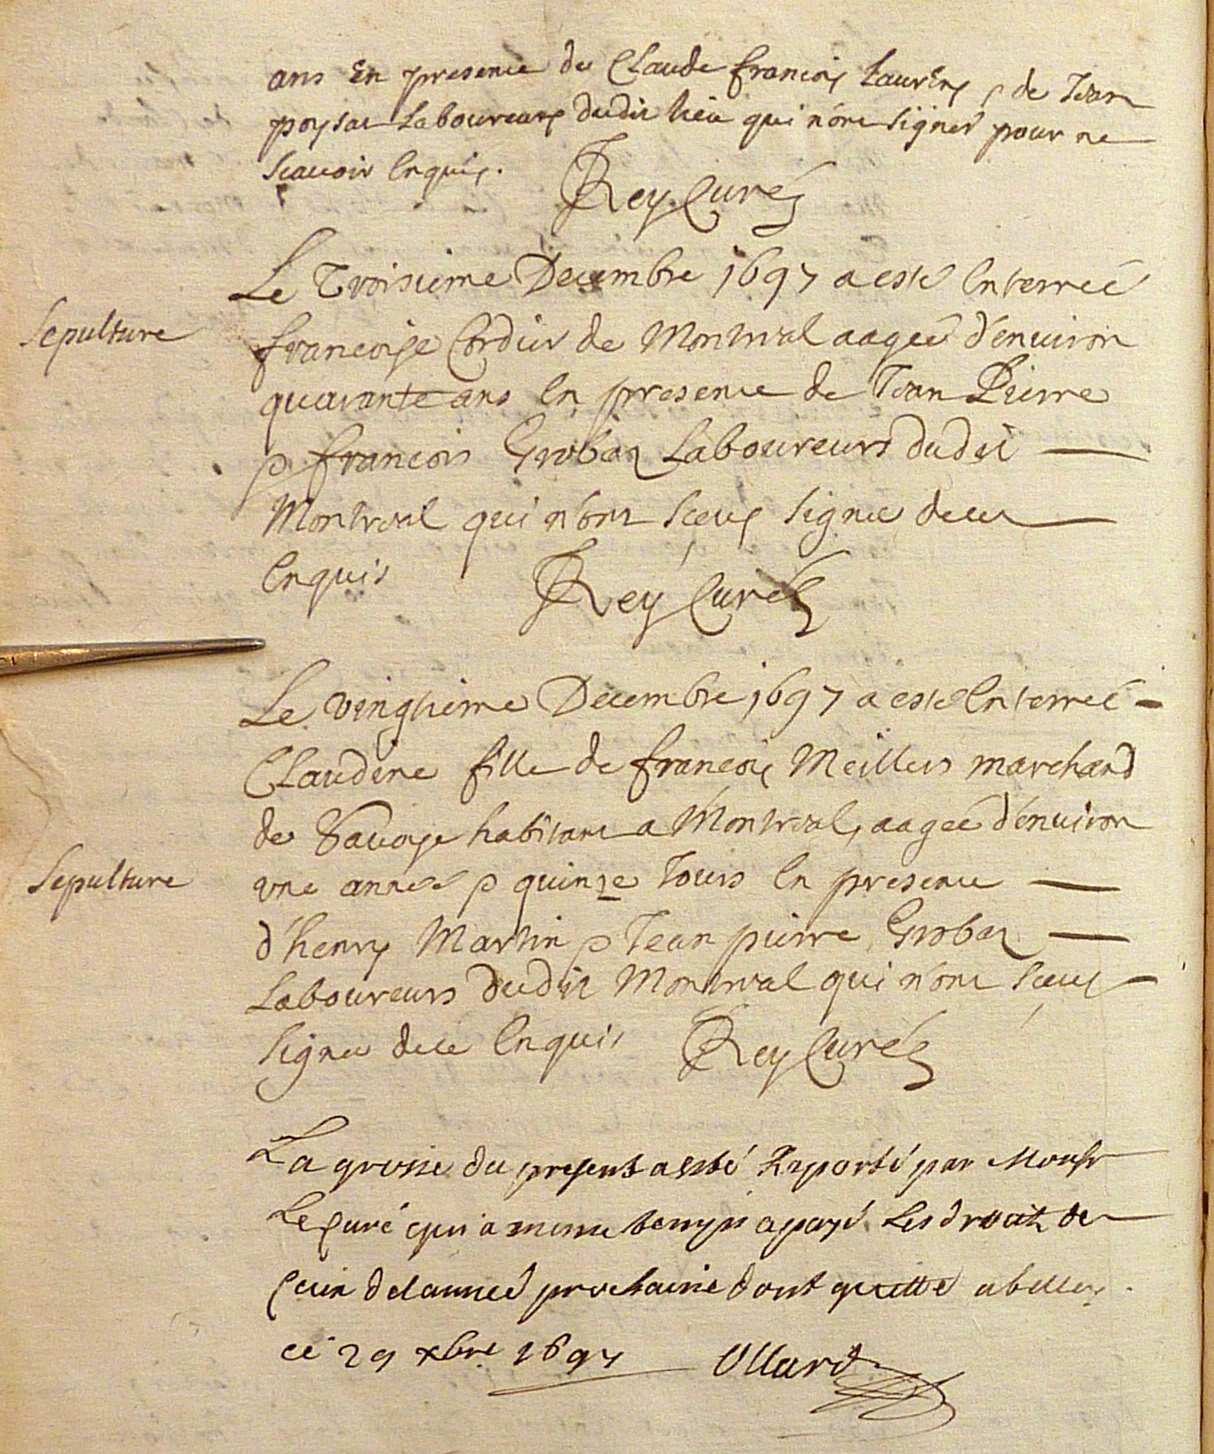 ans En presence de Claude francois Laurens & de Jean
poysat Laboureurs dudit lieu qui n'ont signés pour ne
scavoir Enquis.
Rey Curé
Le Troisieme Decembre 1697 a esté Enterreé
Sepulture
francoise Cordier de Montreal aageé d'enuiron
quarante ans En presence de Jean Pierre
& francois Grobaz Laboureurs dudit
Montreal qui n'ont sceus signer de ce
Enquis
Rey Curé
Le vingtieme Decembre 1697 a esté Enterreé
Claudine fille de francois Meillers marchand
de Savoye habitant a Montreal, aageé d'enuiron
Sepulture
vne anneé & quinze Jours En presence
d'henry Martin & Jean pierre Grobaz
Laboureurs dudit Montreal qui n'ont sceus
signer de ce Enquis Rey Curé
La grosse du present a esté Raporté par Monsr
Le Curé qui a mesme temps a payé Les droitz de
de l'anneé prochaine dont quitte a belley
ce 29 xbre 1697 Ullard